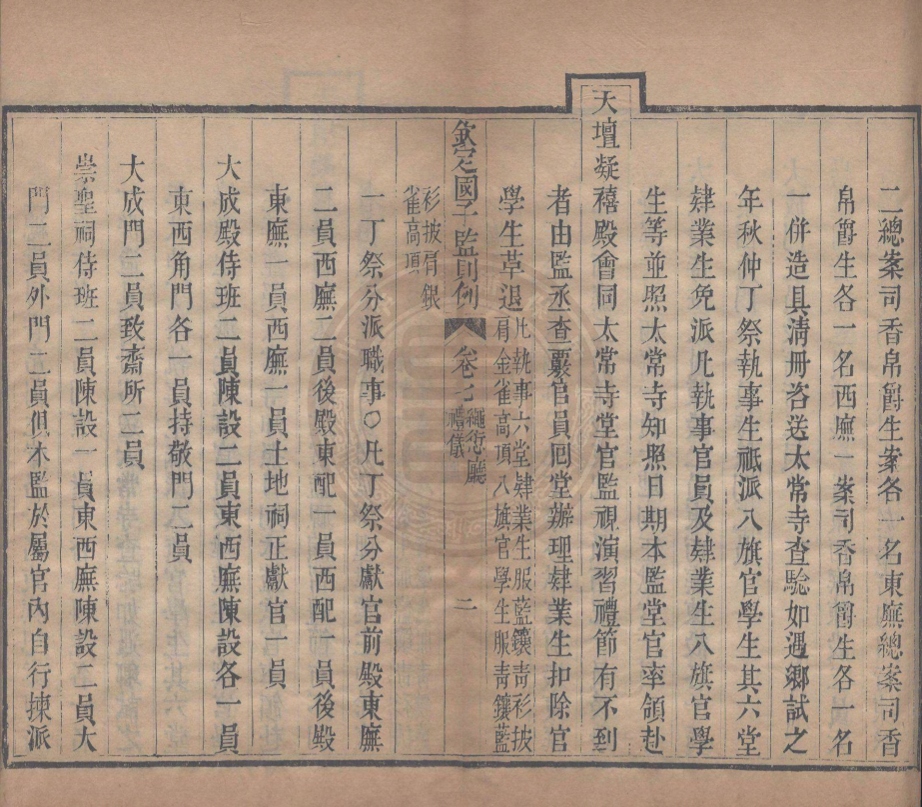 二總案司香帛爵生案各一名東廡總案司香
帛爵生各一名西廡一案司香帛爵生各一名
一併造具清冊咨送太常寺查驗如遇鄉試之
年秋仲丁祭執事生祗派八旗官學生其六堂
肄業生免派凡執事官員及肄業生八旗官學
生等並照太常寺知照日期本監堂官率領赴
天壇凝禧殿會同太常寺堂官監視演習禮節有不到
者由監丞查覈官員回堂辦理肄業生扣除官
學生革退凡執事六堂肄業生服藍鑲青衫披
肩金雀高頂八旗官學生服青鑲藍
衫披肩銀
雀高頂
欽定國子監則例 卷七 繩愆廳
禮儀 二
一丁祭分派職事○凡丁祭分獻官前殿東廡
二員西廡二員後殿東配一員西配一員後殿
東廡一員西廡一員土地祠正獻官一員
大成殿侍班二員陳設二員東西廡陳設各一員
東西角門各一員持敬門二員
大成門二員致齋所二員
崇聖祠侍班二員陳設一員東西廡陳設二員大
門二員外門二員俱本監於屬官內自行揀派